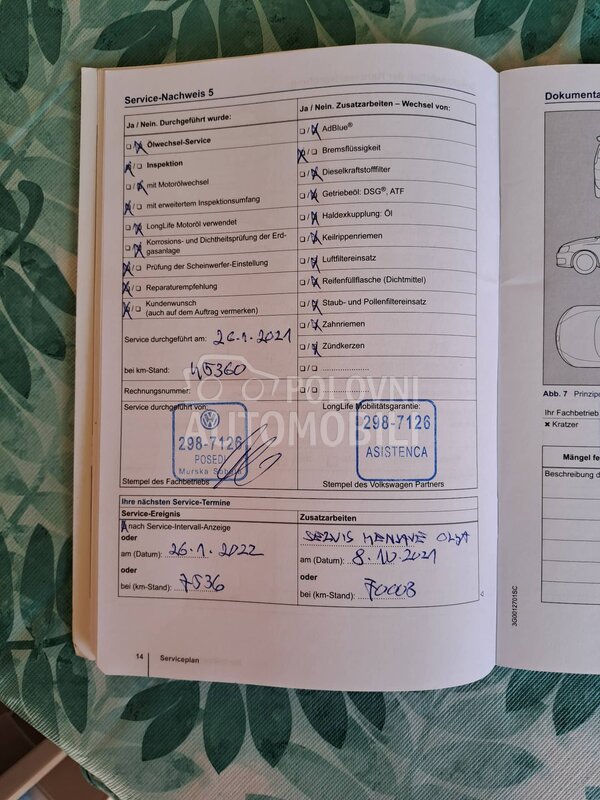 Service-Nachweis 5
Ja / Nein. Durchgeführt wurde:
Ölwechsel-Service
Inspektion
mit Motorölwechsel
mit erweitertem Inspektionsumfang
LongLife Motoröl verwendet
Korrosions- und Dichtheitsprüfung der Erd-
gasanlage
Prüfung der Scheinwerfer-Einstellung
Reparaturempfehlung
Kundenwunsch
(auch auf dem Auftrag vermerken)
Service durchgeführt am: 26.1.2021
bei km-Stand: 45360
Rechnungsnummer:
Service durchgeführt von:
298-7126
POSEDI
Murska Sobota
Stempel des Fachbetriebs
Ja / Nein. Zusatzarbeiten – Wechsel von:
AdBlue®
Bremsflüssigkeit
Dieselkraftstofffilter
Getriebeöl: DSG®, ATF
Haldexkupplung: Öl
Keilrippenriemen
Luftfiltereinsatz
Reifenfüllflasche (Dichtmittel)
Staub- und Pollenfiltereinsatz
Zahnriemen
Zündkerzen
LongLife Mobilitätsgarantie:
298-7126
ASISTENCA
Stempel des Volkswagen Partners
POLOVNI
AUTOMOBILI
Ihre nächsten Service-Termine
Service-Ereignis
nach Service-Intervall-Anzeige
oder
am (Datum): 26.1.2022
oder
bei (km-Stand): 7536
Zusatzarbeiten
SERVIS MENJAVE OLJA
am (Datum): 8.10.2021
oder
bei (km-Stand): 70008
14 Serviceplan
3G0012701SC
Dokumenta
Abb. 7 Prinzipd
Ihr Fachbetrieb
× Kratzer
Mängel fe
Beschreibung d